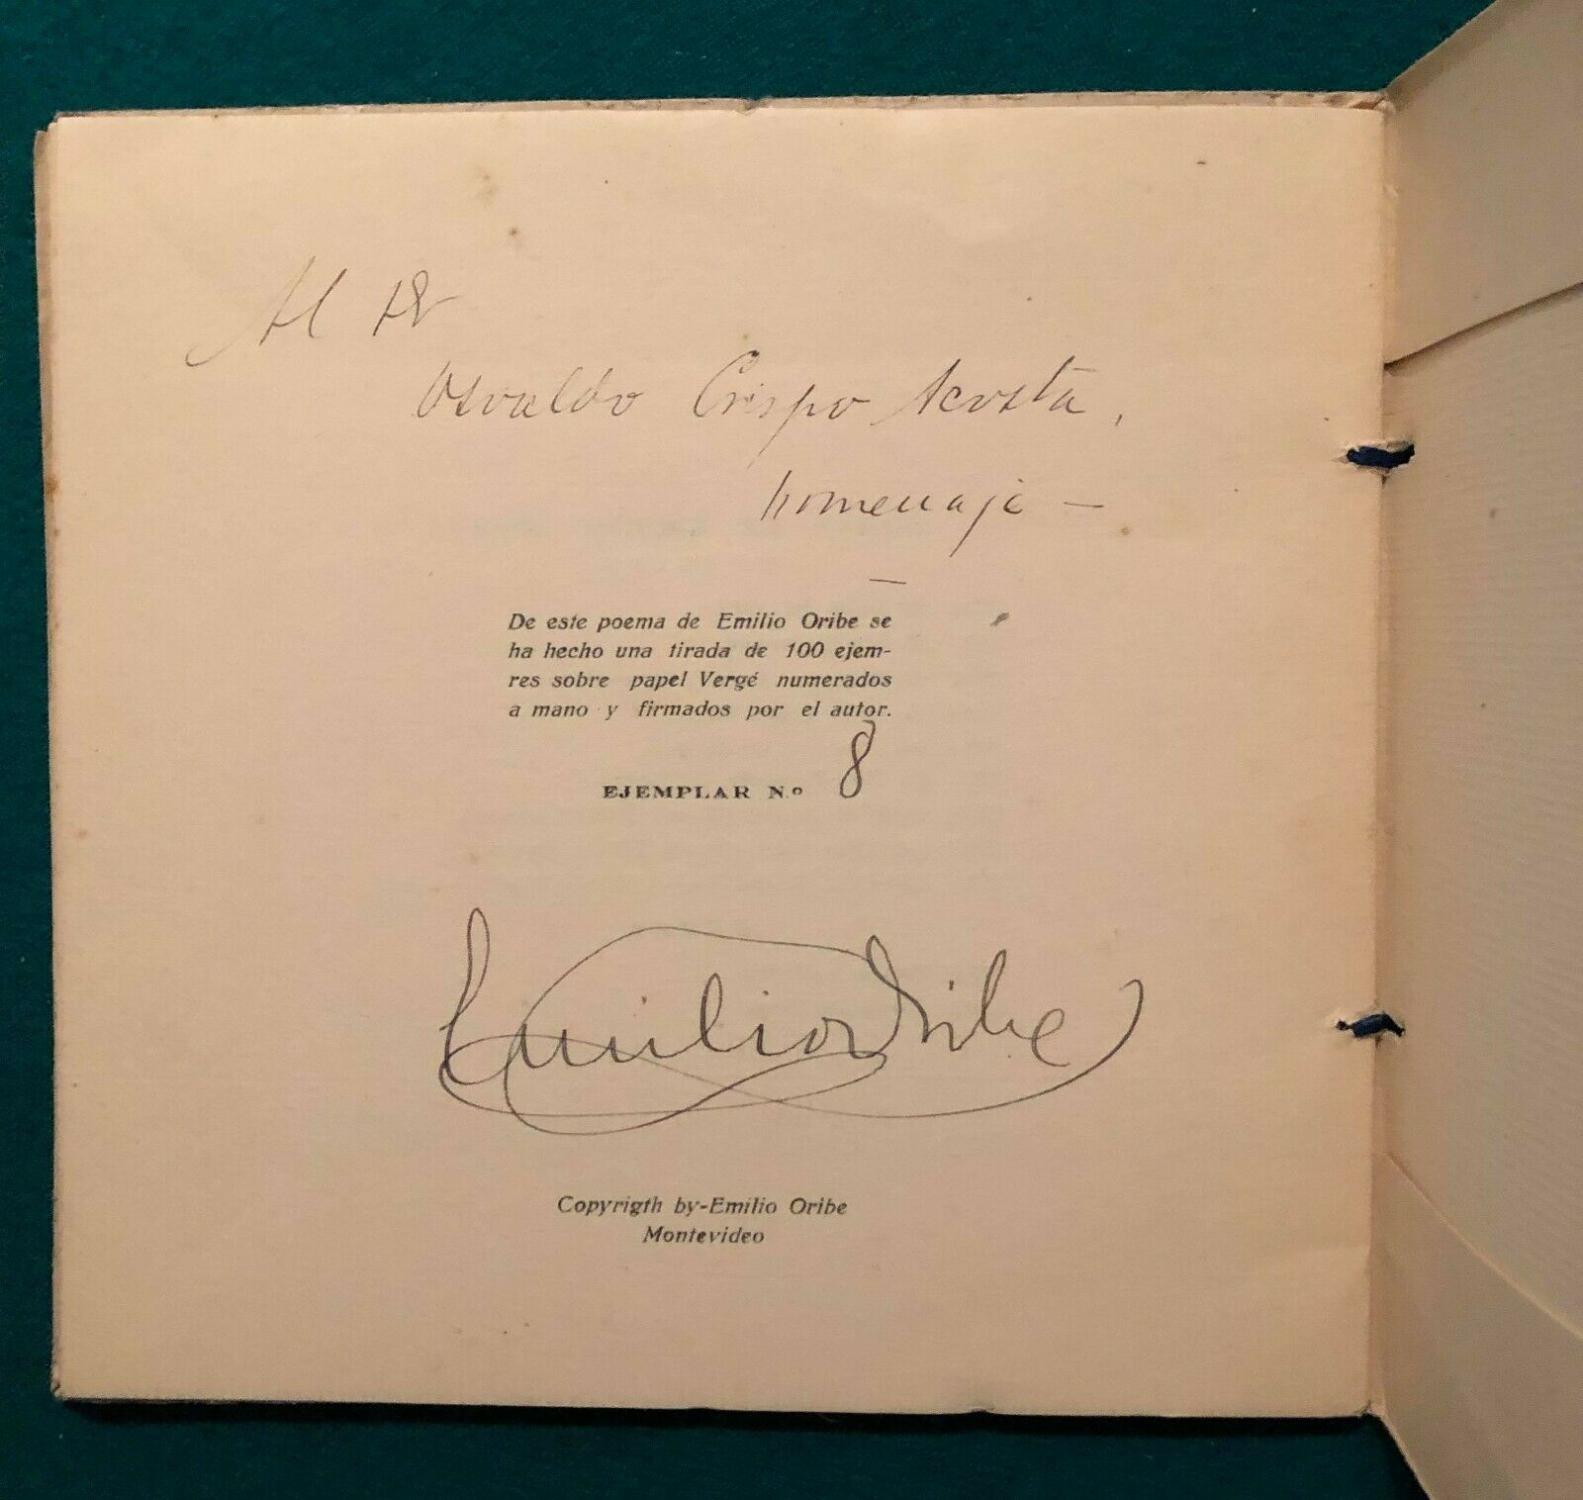 Al Dr
Osvaldo Crispo Acosta,
homenaje —
De este poema de Emilio Oribe se
ha hecho una tirada de 100 ejem-
res sobre papel Vergé numerados
a mano y firmados por el autor.
EJEMPLAR N.º 8
Emilio Oribe
Copyrigth by-Emilio Oribe
Montevideo